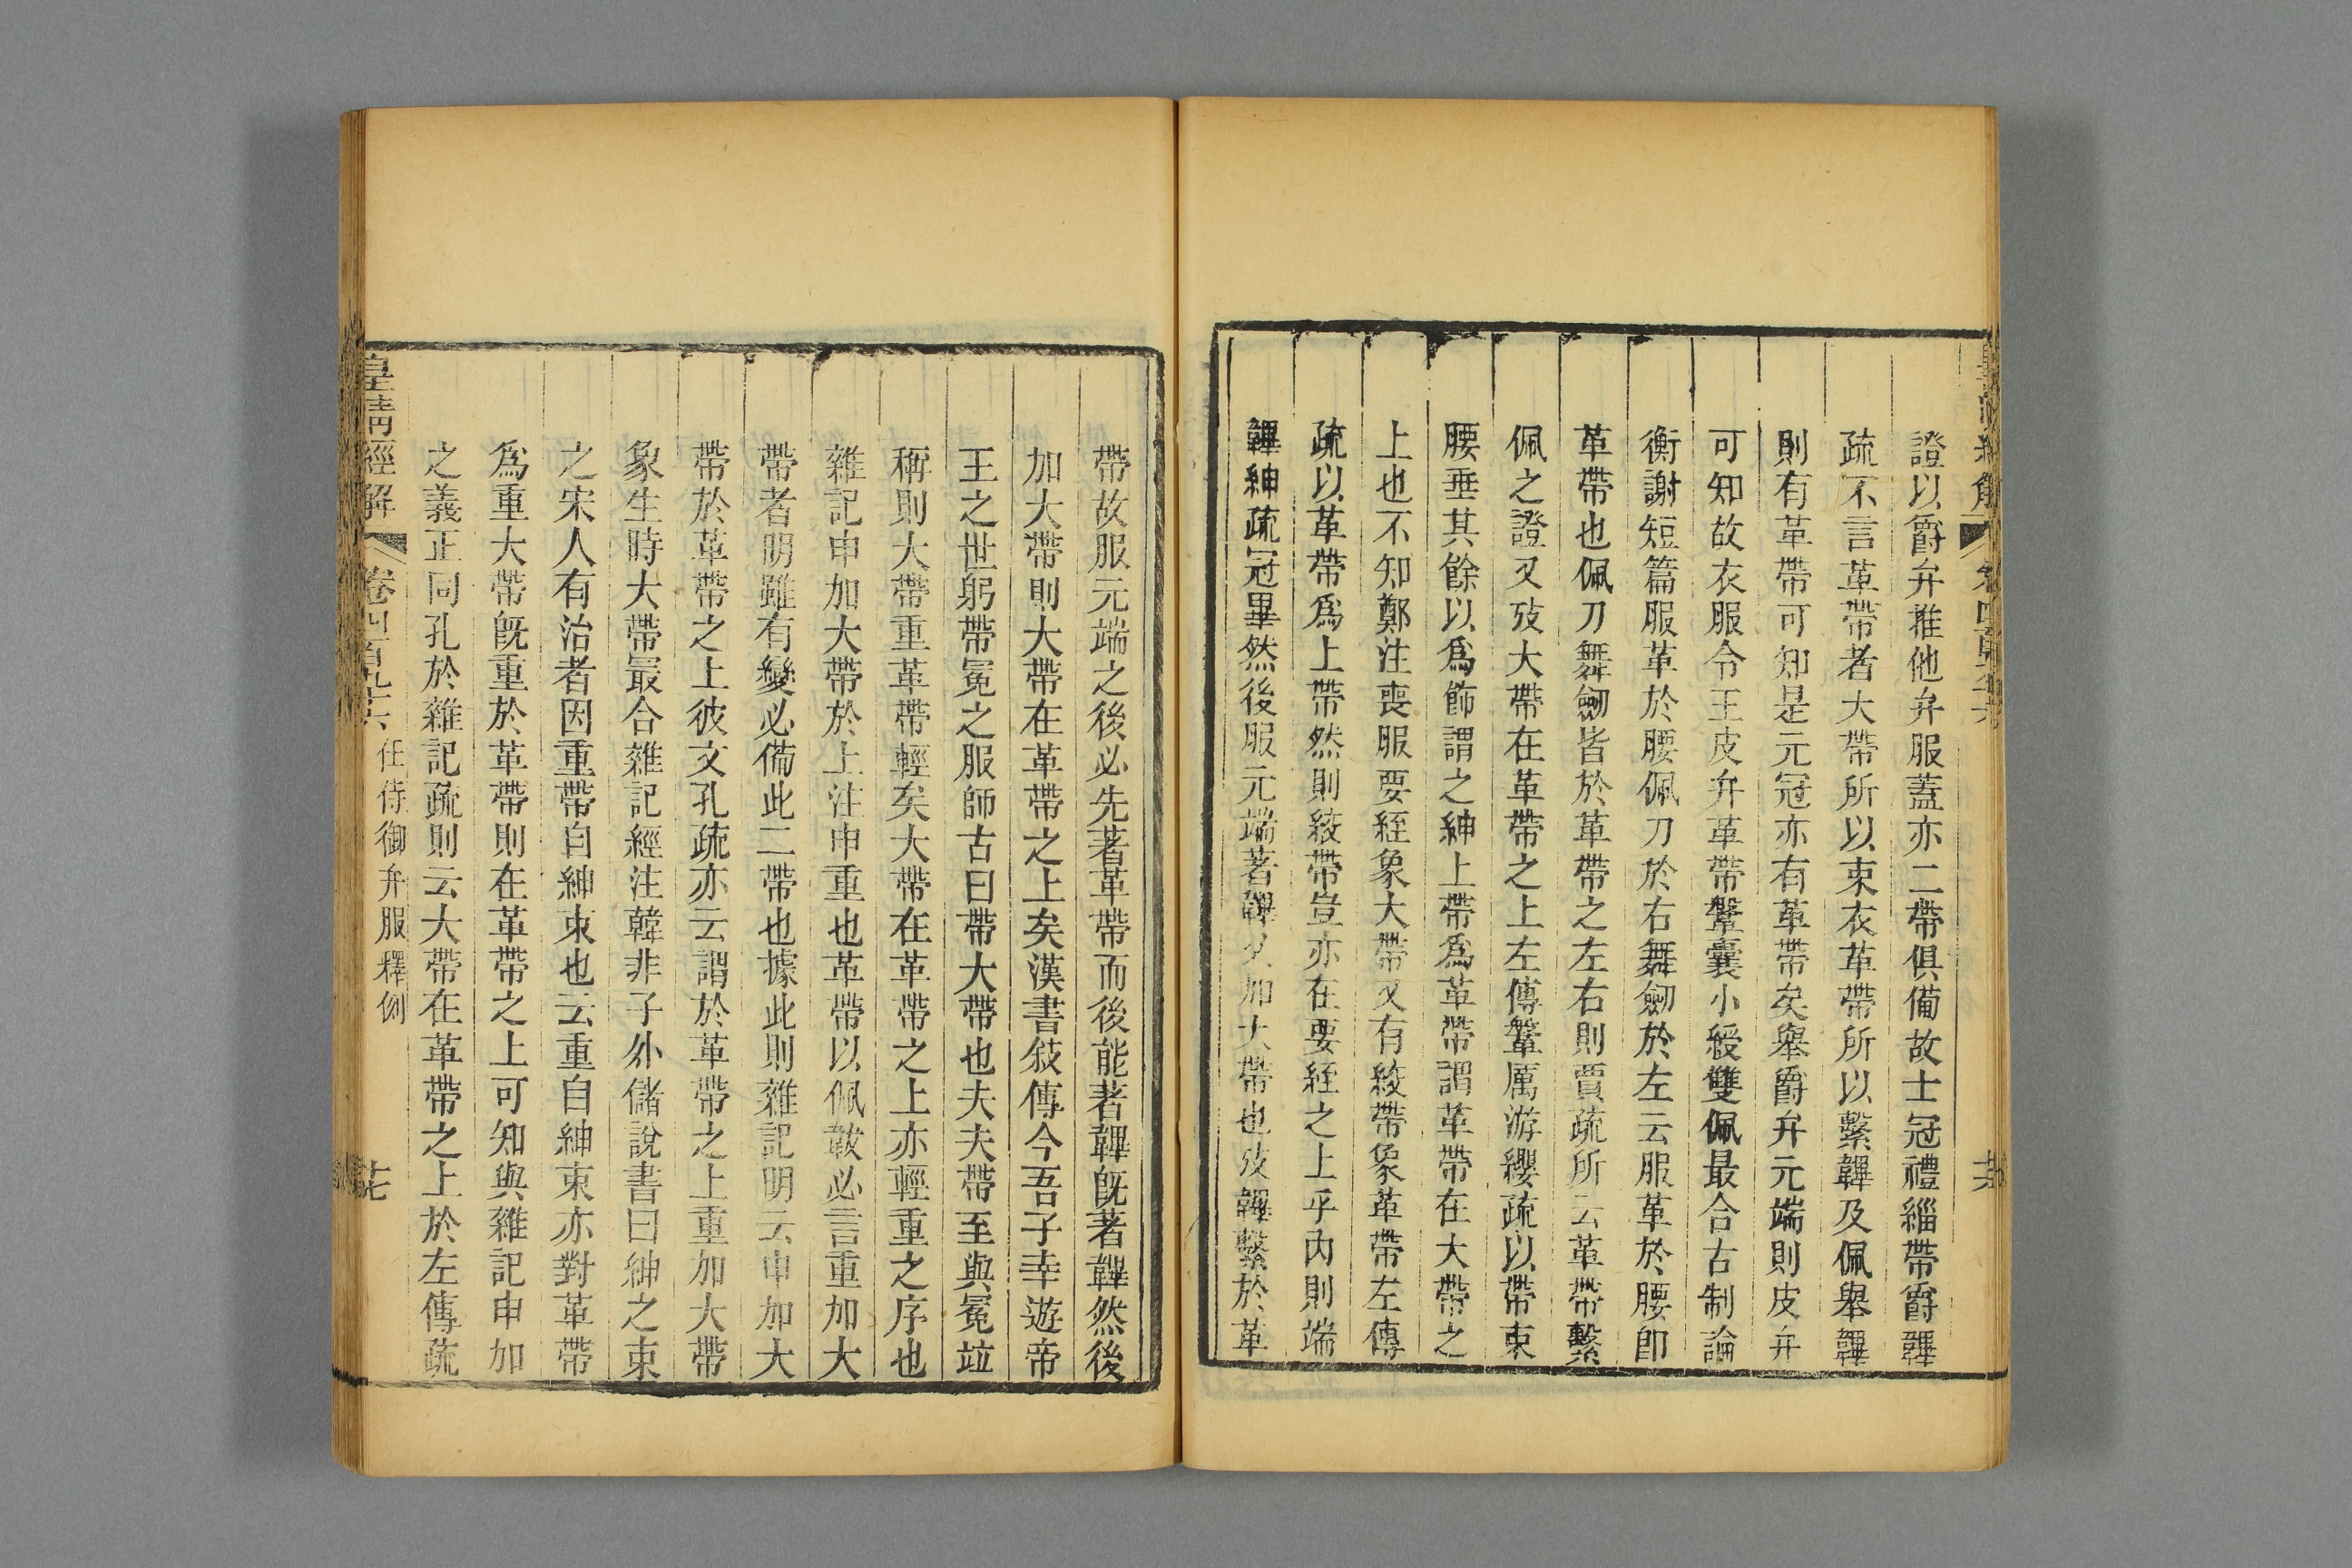 證以爵弁推他弁服蓋亦二帶俱備故士冠禮緇帶爵韠
疏不言革帶者大帶所以束衣革帶所以繫韠及佩舉韠
則有革帶可知是元冠亦有革帶矣舉爵弁元端則皮弁
可知故衣服令王皮弁革帶鞶囊小綬雙佩最合古制論
衡謝短篇服革於腰佩刀於右舞劒於左云服革於腰卽
革帶也佩刀舞劒皆於革帶之左右則賈疏所云革帶繫
佩之證又攷大帶在革帶之上左傳鞶厲游纓疏以帶束
腰垂其餘以爲飾謂之紳上帶爲革帶謂革帶在大帶之
上也不知鄭注喪服要絰象大帶又有絞帶象革帶左傳
疏以革帶爲上帶然則絞帶豈亦在要絰之上乎內則端
韠紳疏冠畢然後服元端著韠又加大帶也攷韠繫於革
帶故服元端之後必先著革帶而後能著韠旣著韠然後
加大帶則大帶在革帶之上矣漢書敍傳今吾子幸遊帝
王之世躬帶冕之服師古曰帶大帶也夫夫帶至與冕竝
稱則大帶重革帶輕矣大帶在革帶之上亦輕重之序也
雜記申加大帶於上注申重也革帶以佩韍必言重加大
帶者明雖有變必備此二帶也據此則雜記明云申加大
帶於革帶之上彼文孔疏亦云謂於革帶之上重加大帶
象生時大帶最合雜記經注韓非子外儲說書曰紳之束
之宋人有治者因重帶自紳束也云重自紳束亦對革帶
爲重大帶旣重於革帶則在革帶之上可知與雜記申加
之義正同孔於雜記疏則云大帶在革帶之上於左傳疏
皇淸經解 卷四百九十六 任侍御弁服釋例 七